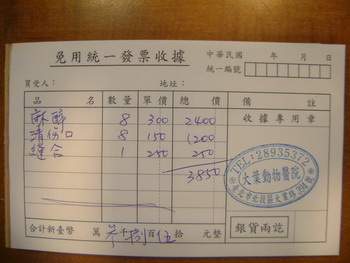 免用統一發票收據
中華民國 年 月 日
統一編號
買受人： 地址：
品 名 數量 單價 總價 備 註
麻醉 8 300 2400 收據專用章
清傷口 8 150 1200
縫合 1 250 250
3850
TEL:28935372
大葉動物醫院
台北市北投區大業路
合計新臺幣 萬 參千捌百伍拾 元整
銀貨兩訖